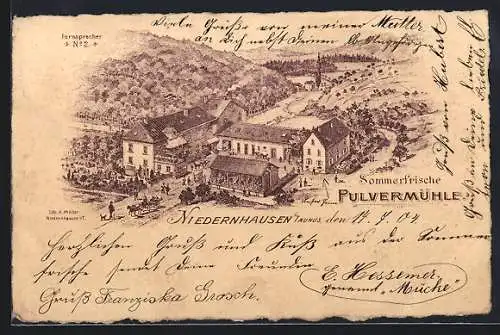 Fernsprecher
No 2.
Viele Grüße von meiner Mutter
an dich nebst Deinen lb. Angehörig.
Gruß von Hubert
Gruß an Deine lieben
und
Sommerfrische
PULVERMÜHLE.
Lith. A. Müller
Niedernhausen i/T.
NIEDERNHAUSEN i/TAUNUS, den 17. 7. 04
Herzlichen Gruß und Kuß aus der Sommer
frische sendet Deine Freundin
E. Hessemer
genannt "Müche"
Gruß Franziska Grosch.